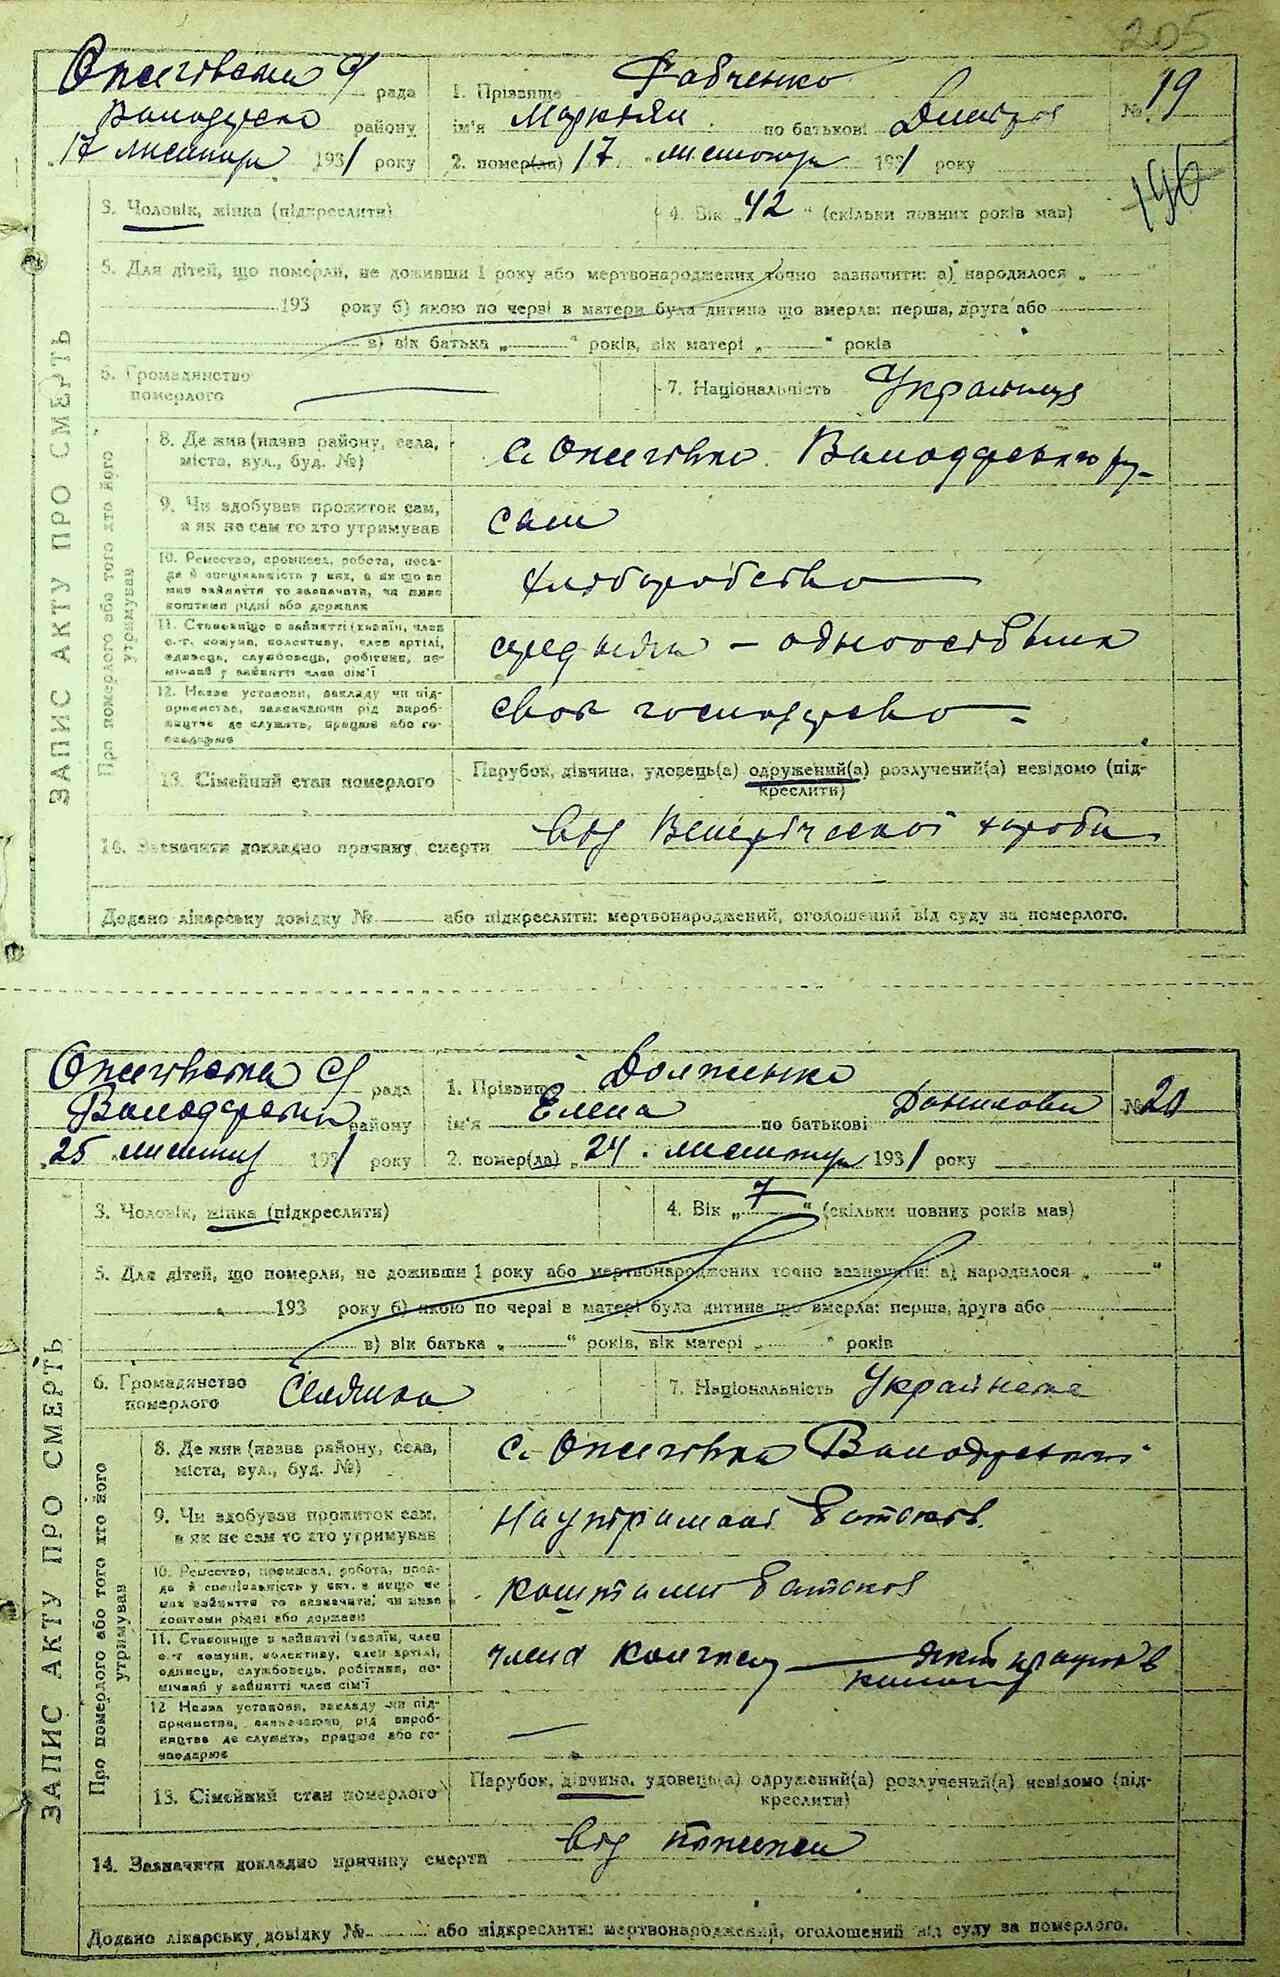 205
Ожегівська с/ рада
Володарсько району
„17 листопада 1931 року
1. Прізвище Рабченко
ім'я Маркіян по батькові Дмитров
2. помер(ла) 17 „листопада 1931 року
№ 19
196
3. Чоловік, жінка (підкреслити)
4. Вік „42" (скільки повних років мав)
5. Для дітей, що померли, не доживши 1 року або мертвонароджених точно зазначити: а) народилося „ "
193 року б) якою по черзі в матери була дитина що вмерла: перша, друга або
в) вік батька „ " років, вік матері „ " років
6. Громадянство
померлого
7. Національність Українця
ЗАПИС АКТУ ПРО СМЕРТЬ
Про померлого або того хто його
утримував
8. Де жив (назва району, села,
міста, вул., буд. №)
с. Ожегівка Володарського р_
9. Чи здобував прожиток сам,
а як не сам то хто утримував
сам
10. Ремество, промисел, робота, поса-
да й спеціяльність у них, а як що не
мав зайняття то зазначити, чи живе
коштами рідні або держави
хліборобство
11. Становище в зайнятті (хазяїн, член
с.-г. комуни, колективу, член артілі,
одинець, службовець, робітник, по-
мічний у зайнятті член сім'ї
середняк – одноосібник
12. Назва установи, закладу чи під-
приємства, зазначаючи рід вироб-
ництва де служить, працює або го-
сподарює
своє господарство
13. Сімейний стан померлого
Парубок, дівчина, удовець(а) одружений(а) розлучений(а) невідомо (під-
креслити)
14. Зазначити докладно причину смерти від Венерічеської хороби
Додано лікарську довідку № або підкреслити: мертвонароджений, оголошений від суду за померлого.
Ожегівська с/ рада
Володарськ району
„25 листопад 1931 року
1. Прізвище Долженко
ім'я Елена по батькові Данилова
2. помер(ла) „24. листопад 1931 року
№ 20
3. Чоловік, жінка (підкреслити)
4. Вік „7" (скільки повних років мав)
5. Для дітей, що померли, не доживши 1 року або мертвонароджених точно зазначити: а) народилося „ "
193 року б) якою по черзі в матері була дитина що вмерла: перша, друга або
в) вік батька „ " років, вік матері „ " років
6. Громадянство
померлого
Селянка
7. Національність Українка
ЗАПИС АКТУ ПРО СМЕРТЬ
Про померлого або того хто його
утримував
8. Де жив (назва району, села,
міста, вул., буд. №)
с. Ожегівка Володарський
9. Чи здобував прожиток сам,
а як не сам то хто утримував
На утріманні батьків.
10. Ремество, промисел, робота, поса-
да й спеціяльність у них, а якщо не
мав зайняття то зазначити, чи живе
коштами рідні або держави
коштами батьков
11. Становище в зайнятті (хазяїн, член
с.-г. комуни, колективу, член артілі,
одинець, службовець, робітник, по-
мічний у зайнятті член сім'ї
члена колгосп
12 Назва установи, закладу чи під-
приємства, зазначаючи рід вироб-
ництва де служить, працює або го-
сподарює
13. Сімейний стан померлого
Парубок, дівчина, удовець(а) одружений(а) розлучений(а) невідомо (під-
креслити)
14. Зазначити докладно причину смерти від пожежи
Додано лікарську довідку № або підкреслити: мертвонароджений, оголошений від суду за померлого.